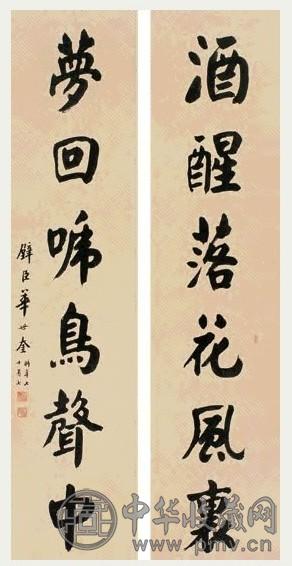 酒醒落花風裏
夢回啼鳥聲中
璧臣華世奎
中华收藏网
www.pmv.cn